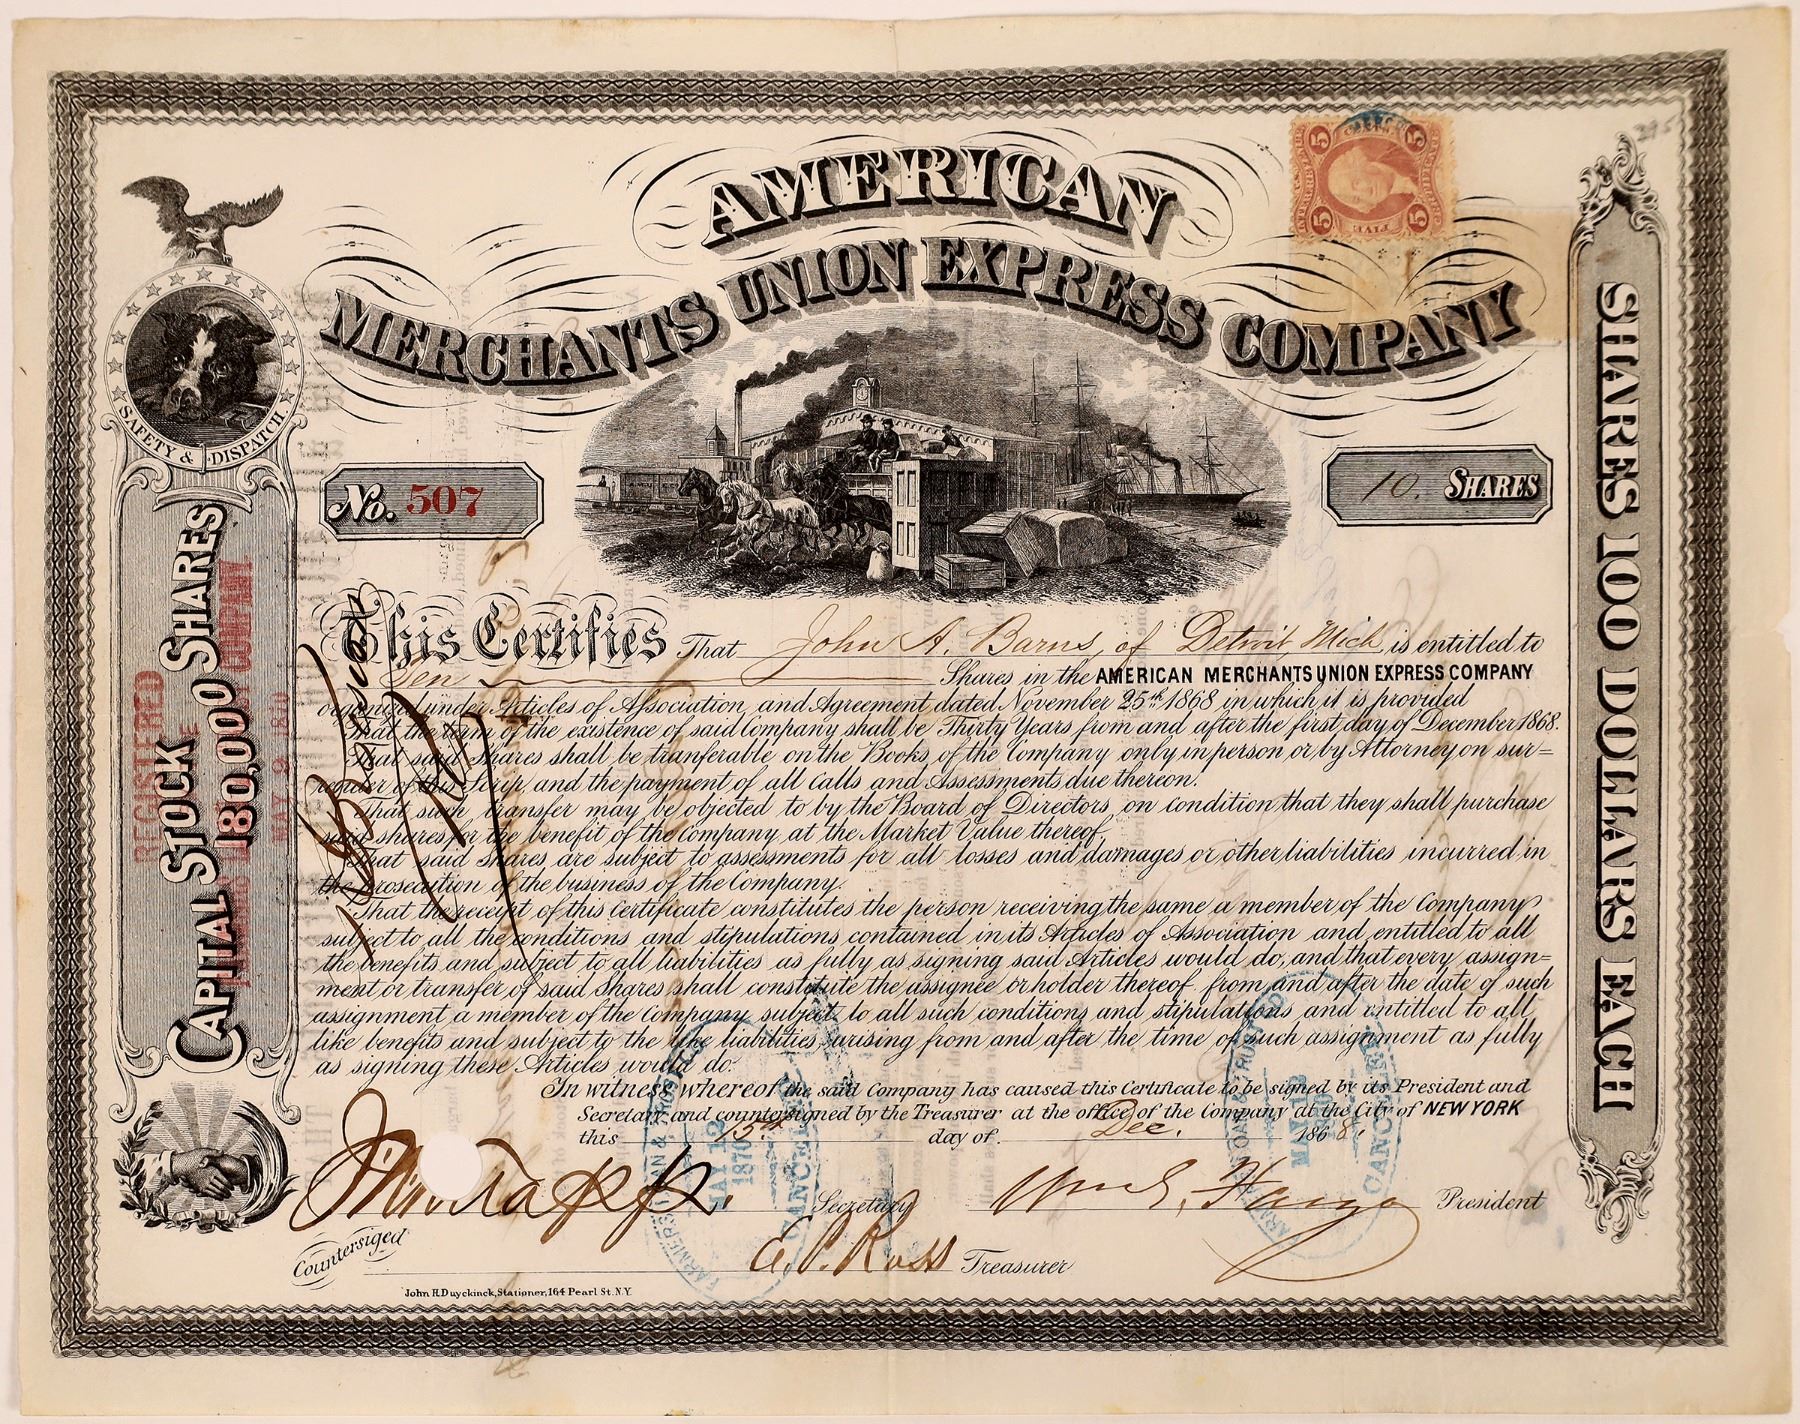 AMERICAN
MERCHANTS UNION EXPRESS COMPANY
5 5
5 FIVE 5
SAFETY & DISPATCH.
No. 507
10. SHARES
CAPITAL STOCK 180,000 SHARES
REGISTERED
SHARES 100 DOLLARS EACH
This Certifies That John A. Barns, of Detroit Mich is entitled to
Ten Shares in the AMERICAN MERCHANTS UNION EXPRESS COMPANY
organized under Articles of Association and Agreement dated November 25th 1868 in which it is provided
That the term of the existence of said Company shall be Thirty Years from and after the first day of December 1868.
That said Shares shall be tranferable on the Books of the Company only in person or by Attorney on sur=
render of this Scrip, and the payment of all Calls and Assessments due thereon.
That such transfer may be objected to by the Board of Directors on condition that they shall purchase
said shares for the benefit of the Company at the Market Value thereof.
That said Shares are subject to assessments for all losses and damages or other liabilities incurred in
the prosecution of the business of the Company.
That the receipt of this Certificate constitutes the person receiving the same a member of the Company
subject to all the conditions and stipulations contained in its Articles of Association and entitled to all
the benefits and subject to all liabilities as fully as signing said Articles would do, and that every assign=
ment or transfer of said Shares shall constitute the assignee or holder thereof from and after the date of such
assignment a member of the Company subject to all such conditions and stipulations and entitled to all
like benefits and subject to the like liabilities arising from and after the time of such assignment as fully
as signing these Articles would do.
In witness whereof the said Company has caused this Certificate to be signed by its President and
Secretary and countersigned by the Treasurer at the office of the Company at the City of NEW YORK
this 15th day of Dec. 1868.
MAY 12
1870
CANCELLED
MAY 12
CANCELLED
Secretary Wm G. Fargo President
Countersigned E. P. Ross Treasurer
John H. Duyckinck, Stationer, 164 Pearl St. N.Y.